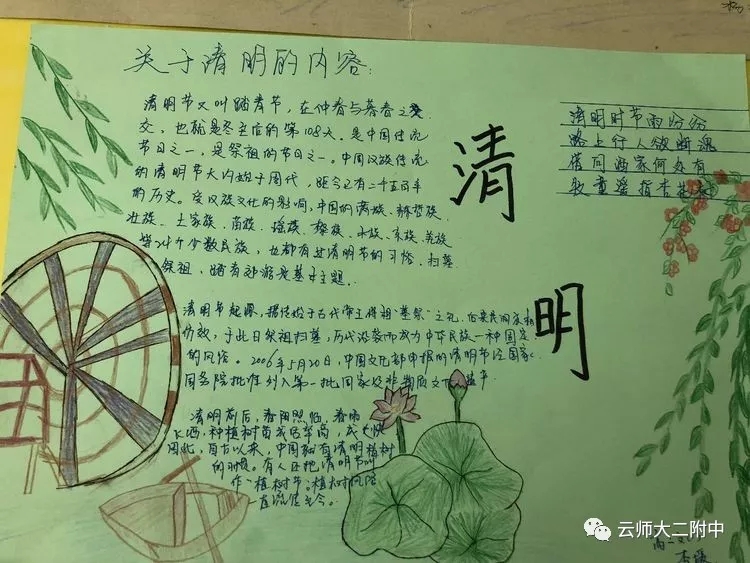 关于清明的内容:
清明节又叫踏青节，在仲春与暮春之
交，也就是冬至后的第108天。是中国传统
节日之一，是祭祖的节日之一。中国汉族传统
的清明节大约始于周代，距今已有二千五百年
的历史。受汉族文化的影响，中国的满族、赫哲族、
壮族、土家族、苗族、瑶族、黎族、水族、京族、羌族
等24个少数民族，也都有过清明节的习俗。扫墓
祭祖，踏青郊游是基本主题。
清明节起源，据传始于古代帝王将相"墓祭"之礼，后来民间亦相
仿效，于此日祭祖扫墓，历代沿袭而成为中华民族一种固定
的风俗。2006年5月20日，中国文化部申报的清明节经国家
国务院批准列入第一批国家级非物质文化遗产。
清明前后，春阳照临，春雨
飞洒，种植树苗成活率高，成长快
因此，自古以来，中国就有清明植树
的习惯。有人还把清明节叫
作"植树节。植树风俗
一直流传至今。
清
明
清明时节雨纷纷
路上行人欲断魂
借问酒家何处有
牧童遥指杏花
云师大二附中